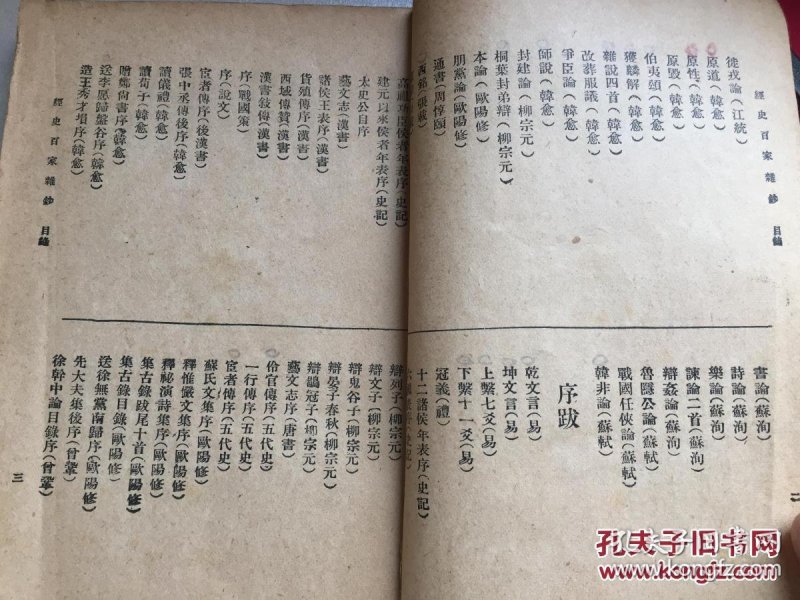 經史百家雜鈔 目錄
徙戎論(江統)
原道(韓愈)
原性(韓愈)
原毀(韓愈)
伯夷頌(韓愈)
獲麟解(韓愈)
雜說四首(韓愈)
改葬服議(韓愈)
爭臣論(韓愈)
師說(韓愈)
封建論(柳宗元)
桐葉封弟辯(柳宗元)
本論(歐陽修)
朋黨論(歐陽修)
通書(周惇頤)
西銘(張載)
書論(蘇洵)
詩論(蘇洵)
樂論(蘇洵)
諫論二首(蘇洵)
辯姦論(蘇洵)
魯隱公論(蘇軾)
戰國任俠論(蘇軾)
韓非論(蘇軾)
序跋
乾文言(易)
坤文言(易)
上繫七爻(易)
下繫十一爻(易)
冠義(禮)
十二諸侯年表序(史記)
二
高祖功臣侯者年表序(史記)
建元以來侯者年表序(史記)
太史公自序
藝文志(漢書)
諸侯王表序(漢書)
貨殖傳序(漢書)
西域傳贊(漢書)
漢書敍傳(漢書)
序(戰國策)
序(說文)
宦者傳序(後漢書)
張中丞傳後序(韓愈)
讀儀禮(韓愈)
讀荀子(韓愈)
贈鄭尚書序(韓愈)
送李愿歸盤谷序(韓愈)
送王秀才塤序(韓愈)
辯列子(柳宗元)
辯文子(柳宗元)
辯鬼谷子(柳宗元)
辯晏子春秋(柳宗元)
辯鶡冠子(柳宗元)
藝文志序(唐書)
伶官傳序(五代史)
一行傳序(五代史)
宦者傳序(五代史)
蘇氏文集序(歐陽修)
釋惟儼文集序(歐陽修)
釋祕演詩集序(歐陽修)
集古錄跋尾十首(歐陽修)
集古錄目錄序(歐陽修)
送徐無黨南歸序(歐陽修)
先大夫集後序(曾鞏)
徐幹中論目錄序(曾鞏)
經史百家雜鈔 目錄
三
孔夫子旧书网
www.kongfz.com